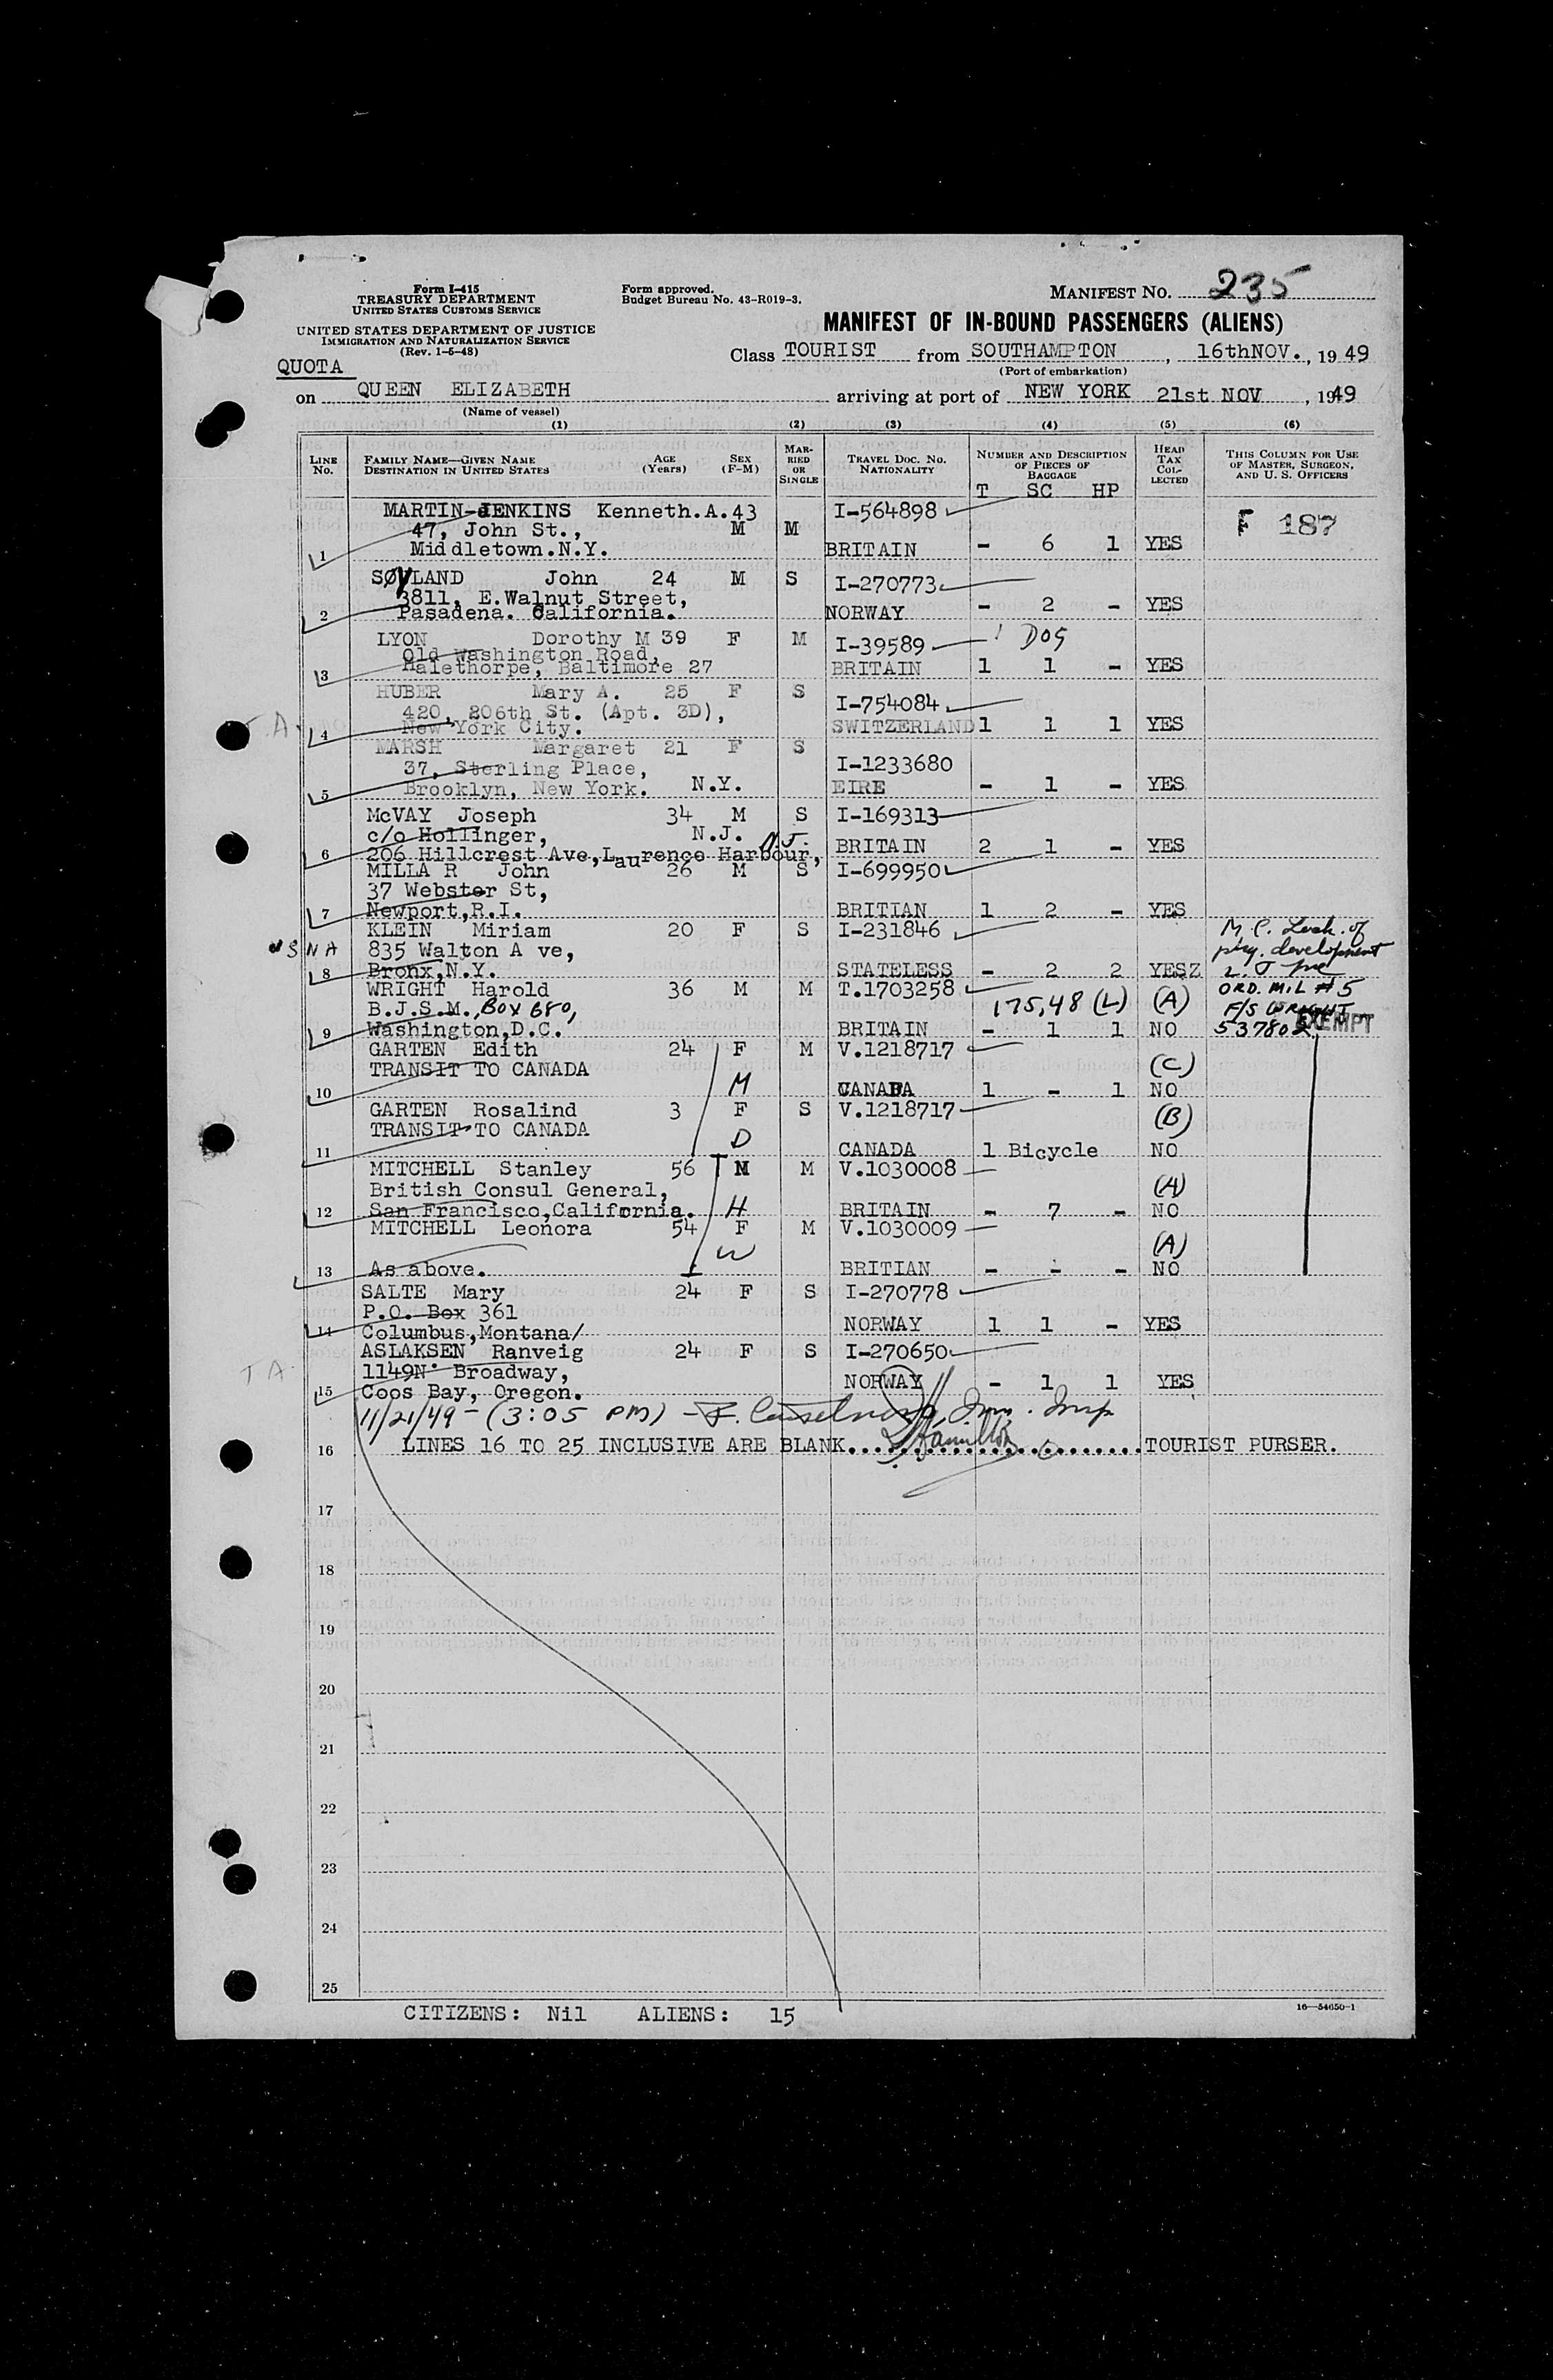 Form I-415
TREASURY DEPARTMENT
UNITED STATES CUSTOMS SERVICE
UNITED STATES DEPARTMENT OF JUSTICE
IMMIGRATION AND NATURALIZATION SERVICE
(Rev. 1-5-48)
Form approved.
Budget Bureau No. 43-R019-3.
MANIFEST NO. 235
MANIFEST OF IN-BOUND PASSENGERS (ALIENS)
Class TOURIST from SOUTHAMPTON, 16thNOV., 1949
(Port of embarkation)
QUOTA
on QUEEN ELIZABETH arriving at port of NEW YORK 21st NOV, 1949
(Name of vessel)
(1) (2) (3) (4) (5) (6)
LINE NO.
FAMILY NAME—GIVEN NAME
DESTINATION IN UNITED STATES
AGE (Years)
SEX (F-M)
MARRIED OR SINGLE
TRAVEL DOC. NO.
NATIONALITY
NUMBER AND DESCRIPTION OF PIECES OF BAGGAGE
T SC HP
HEAD TAX COLLECTED
THIS COLUMN FOR USE OF MASTER, SURGEON, AND U. S. OFFICERS
MARTIN-JENKINS Kenneth.A. 43 I-564898 F 187
47, John St., M M
1 Middletown.N.Y. BRITAIN - 6 1 YES
SØYLAND John 24 M S I-270773
3811, E.Walnut Street,
2 Pasadena. California. NORWAY - 2 - YES
LYON Dorothy M 39 F M I-39589 1 DOG
Old Washington Road,
3 Halethorpe, Baltimore 27 BRITAIN 1 1 - YES
HUBER Mary A. 25 F S I-754084
420, 206th St. (Apt. 3D),
4 New York City. SWITZERLAND 1 1 1 YES
MARSH Margaret 21 F S
37, Sterling Place, I-1233680
5 Brooklyn, New York. N.Y. EIRE - 1 - YES
McVAY Joseph 34 M S I-169313
c/o Hollinger, N.J. N.J.
6 206 Hillcrest Ave,Laurence Harbour, BRITAIN 2 1 - YES
MILLA R John 26 M S I-699950
37 Webster St,
7 Newport,R.I. BRITIAN 1 2 - YES
KLEIN Miriam 20 F S I-231846 M.C. Lack of
USNA 835 Walton A ve, phy. development
8 Bronx,N.Y. STATELESS - 2 2 YES
WRIGHT Harold 36 M M T.1703258 ORD. MIL #5
B.J.S.M., BOX 680, 175,48 (L) (A) F/S WRIGHT
9 Washington,D.C. BRITAIN - 1 1 NO 537802 EXEMPT
GARTEN Edith 24 F M V.1218717
TRANSIT TO CANADA (C)
10 M CANADA 1 - 1 NO
GARTEN Rosalind 3 F S V.1218717 (B)
TRANSIT TO CANADA
11 D CANADA 1 Bicycle NO
MITCHELL Stanley 56 M M V.1030008
British Consul General, (A)
12 San Francisco,California. H BRITAIN - 7 - NO
MITCHELL Leonora 54 F M V.1030009
W (A)
13 As above. BRITIAN - - - NO
SALTE Mary 24 F S I-270778
P.O. Box 361
14 Columbus,Montana/ NORWAY 1 1 - YES
ASLAKSEN Ranveig 24 F S I-270650
T A 1149N. Broadway,
15 Coos Bay, Oregon. NORWAY - 1 1 YES
11/21/49 - (3:05 PM) Imm. Insp
16 LINES 16 TO 25 INCLUSIVE ARE BLANK........................TOURIST PURSER.
Hamilton
17
18
19
20
21
22
23
24
25
CITIZENS: Nil ALIENS: 15
16—54650-1